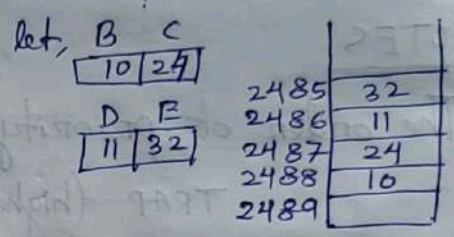 let, B C
10 24
D E
11 32
2485 32
2486 11
2487 24
2488 10
2489